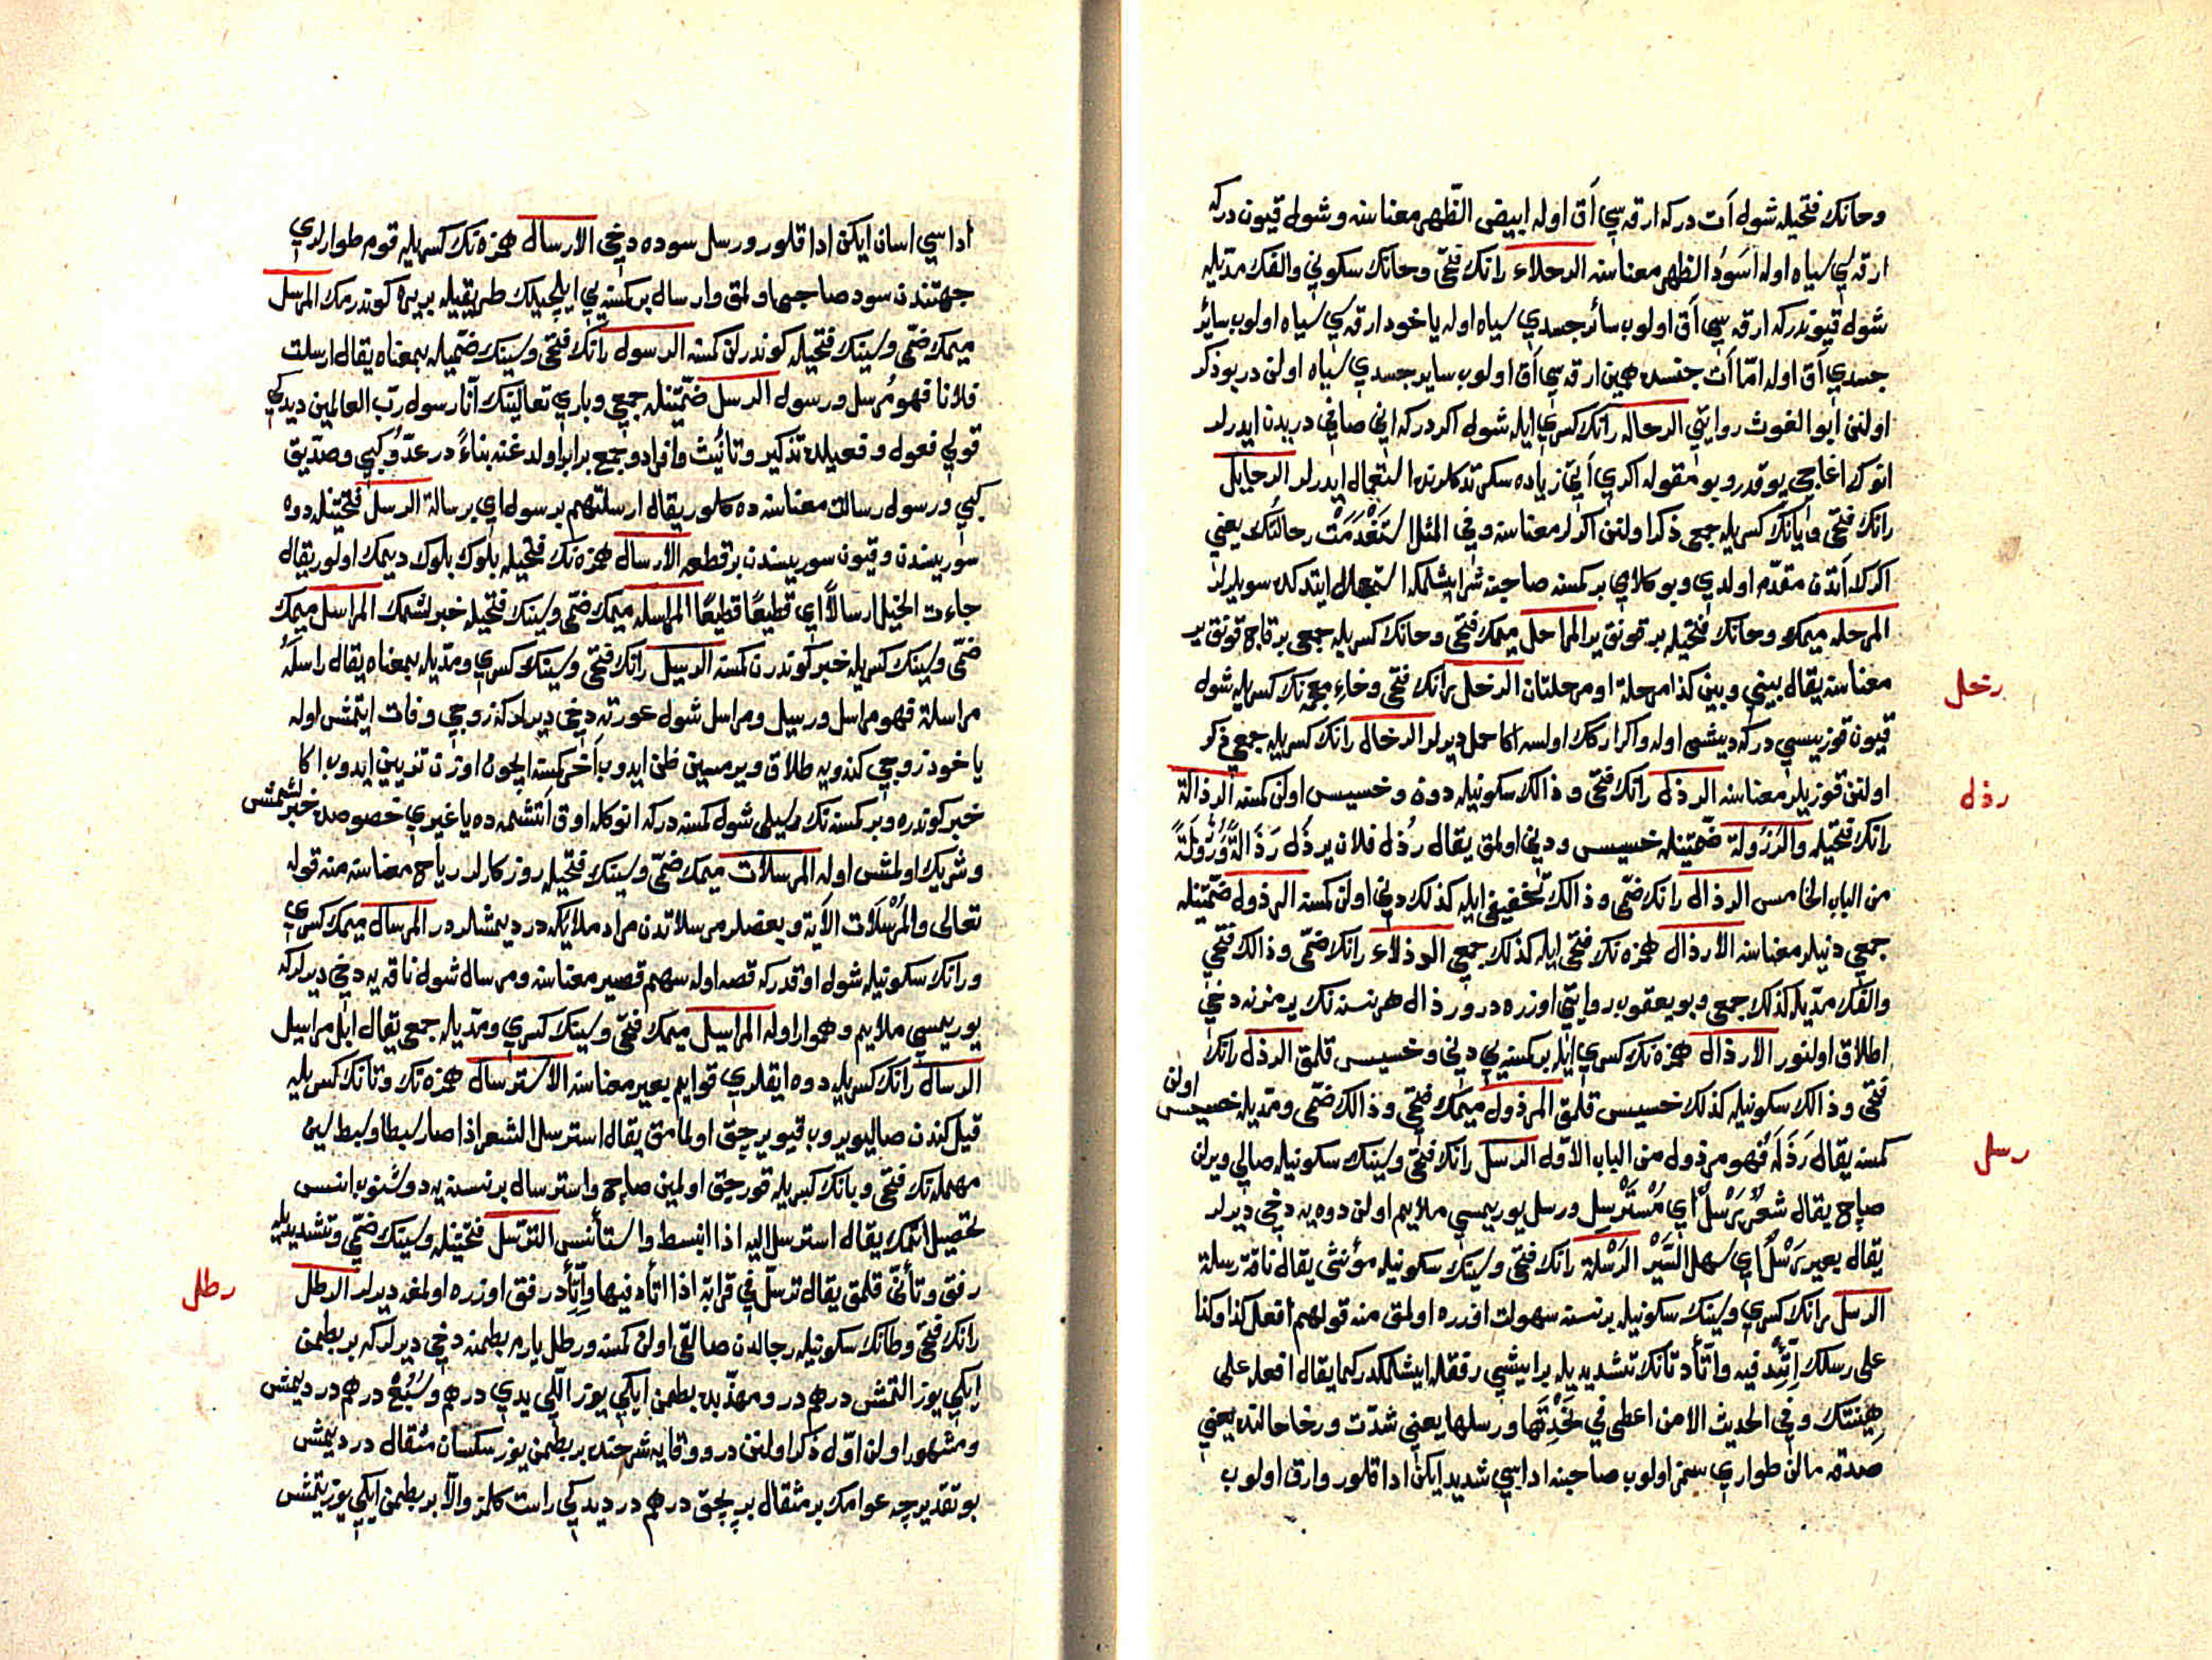 وحانك فتحيله شول آت دركه ارقه سي آق اوله ابيض الظّهر معناسنه وشول قيون دركه
ارقه سي سياه اوله اسود الظهر معناسنه الرحلاء رانك فتحي وحانك سكوني والفك مدّيله
شول قيوندركه ارقه سي آق اولوب سائر جسدي سياه اوله ياخود ارقه سي سياه اولوب سائر
جسدي آق اوله امّا آت جنسنده همين ارقه سي آق اولوب ساير جسدي سياه اولن در بو ذكر
اولنن ابو الغوث روايتي الرحال رانك كسري ايله شول اكر دركه اني صافي دريدن ايدرلر
انوك اغاجي يوقدر وبو مقوله اكري آتي زياده سكرتدكلرنده استعمال ايدرلر الرحايل
رانك فتحي ويانك كسريله جمعي ذكر اولنن اكرلر معناسنه وفي المثل استقدمت رحالتك يعني
اكرك آتدن مقدّم اولدي وبو كلامي بر كمسنه صاحبنه شرايشلمكه استعجال ايتدكده سويلرلر
المرحله ميمك وحانك فتحيله بر قونق ير المراحل ميمك فتحي وحانك كسريله جمعي بر قاج قونق ير
معناسنه يقال بيني وبين كذا مرحلة او مرحلتان الرخل رانك فتحي وخاء معجمه نك كسريله شول
رخل
قيون قوزيسي دركه ديشي اوله واكر اركك اولسه اكا حمل ديرلر الرخال رانك كسريله جمعي ذكر
اولنن قوزيلر معناسنه الرذل رانك فتحي وذالك سكونيله دون وخسيس اولن كمسنه الرذالة
رذل
رانك فتحيله والرذولة ضمّتينله خسيس ودني اولمق يقال رذل فلان يرذل رذالةً ورذولةً
من الباب الخامس الرذال رانك ضمّي وذالك تخفيفي ايله كذلك دني اولن كمسنه الرذول ضمّتينله
جمعي دنيلر معناسنه الارذال همزه نك فتحي ايله كذلك جمعي الرذلاء رانك ضمّي وذالك فتحي
والفك مدّيله كذلك جمعي وبو يعقوب روايتي اوزره در ورذال هر نسنه نك يرمزنه دخي
اطلاق اولنور الارذال همزه نك كسري ايله بر كمسنه يي دني وخسيس قلمق الرذل رانك
فتحي وذالك سكونيله كذلك خسيس قلمق المرذول ميمك فتحي وذالك ضمّي ومدّيله خسيس اولن
كمسنه يقال رذله فهو مرذول من الباب الاوّل الرسل رانك فتحي وسينك سكونيله صالي ويرلن
رسل
صاچ يقال شعرٌ رسلٌ اي مسترسل ورسل يوريمسي ملايم اولن دوه يه دخي ديرلر
يقال بعير رسل اي سهل السّير الرسلة رانك فتحي وسينك سكونيله مؤنثي يقال ناقة رسلة
الرسل رانك كسري وسينك سكونيله بر نسنه سهولت اوزره اولمق منه قولهم افعل كذا وكذا
على رسلك اتّئد فيه واتّأد تانك تشديديله بر ايشي رفقله ايشلمكدر كما يقال افعله على
هينتك وفي الحديث الا من اعطى في نجدتها ورسلها يعني شدّت ورخا حالنده يعني
صدقه مالن طواري سمز اولوب صاحبنه اداسي شديد ايكن ادا قلور وارق اولوب
اداسي اسان ايكن ادا قلور ورسل سوده دخي الارسال همزه نك كسريله قوم طوارلري
جهتندن سود صاحبي اولمق وارسال بر كمسنه يي ايلچيلك طريقيله بر يره كوندرمك المرسل
ميمك ضمّي وسينك فتحيله كوندرلن كمسنه الرسول رانك فتحي وسينك ضمّيله بمعناه يقال ارسلت
فلانا فهو مرسل ورسول الرسل ضمّتينله جمعي وباري تعالينك انّا رسول ربّ العالمين ديدكي
قولي فعول وفعيلده تذكير وتأنيث وافراد وجمع برابر اولدغنه بناءً در عدوّ كبي وصدّيق
كبي ورسول رسالت معناسنه ده كلور يقال ارسلتهم برسول اي برسالة الرسل فتحتينله دوه
سوريسندن وقيون سوريسندن بر قطعه الارسال همزه نك فتحيله بلوك بلوك ديمك اولور يقال
جاءت الخيل ارسالاً اي قطيعًا قطيعًا المراسله ميمك ضمّي وسينك فتحيله خبرلشمك المراسل ميمك
ضمّي وسينك كسريله خبر كوندرن كمسنه الرسيل رانك فتحي وسينك كسري ومدّيله بمعناه يقال راسله
مراسلة فهو مراسل ورسيل ومراسل شول عورته دخي ديرلركه زوجي وفات ايتمش اوله
ياخود زوجي كندويه طلاق ويرمسين ظن ايدوب آخر كمسنه ايچون اوزن تزيين ايدوب اكا
خبر كوندره وبر كمسنه نك رسيلي شول كمسنه دركه انوكله اوق آتشمه ده يا غيري خصوصده خبرلشمش
وشريك اولمش اوله المرسلات ميمك ضمّي وسينك فتحيله روزكارلر رياح معناسنه منه قوله
تعالى والمرسلات الآية وبعضلر مرسلاتدن مراد ملائكه در ديمشلردر المرسال ميمك كسري
ورانك سكونيله شول اوقدركه قصه اوله سهم قصير معناسنه ومرسال شول ناقه يه دخي ديرلركه
يوريمسي ملايم وهموار اوله المراسيل ميمك فتحي وسينك كسري ومدّيله جمعي يقال ابل مراسيل
الرسال رانك كسريله دوه ايقلري قوايم بعير معناسنه الاسترسال همزه نك وتانك كسريله
قيل كندن صاليويروب قيويرجق اولمامق يقال استرسل الشعر اذا صار سبطا وسبط سين
مهمله نك فتحي وبانك كسريله قورجق اولمين صاچ واسترسال بر نسنه يه دوشنوب انس
تحصيل اتمك يقال استرسل اليه اذا انبسط واستأنس الترسّل فتحتينله وسينك ضمّي وتشديديله
رفق وتأنّي قلمق يقال ترسّل في قراءته اذا اتّأد فيها واتّأد رفق اوزره اولمغه ديرلر الرطل
رطل
رانك فتحي وطانك سكونيله رجالدن صالقي اولن كمسنه ورطل يارم بطمنه دخي ديرلركه بر بطمن
ايكي يوز التمش درهم در ومهذّبده بطمن ايكي يوز اللّي يدي درهم وسُبُع درهم در ديمش
ومشهور اولن اوّل ذكر اولنن در ووقايه شرحنده بر بطمن يوز سكسان مثقال در ديمش
بو تقديرجه عوامك بر مثقال بر بچق درهم در ديدكي راست كلمز والّا بر بطمن ايكي يوز يتمش